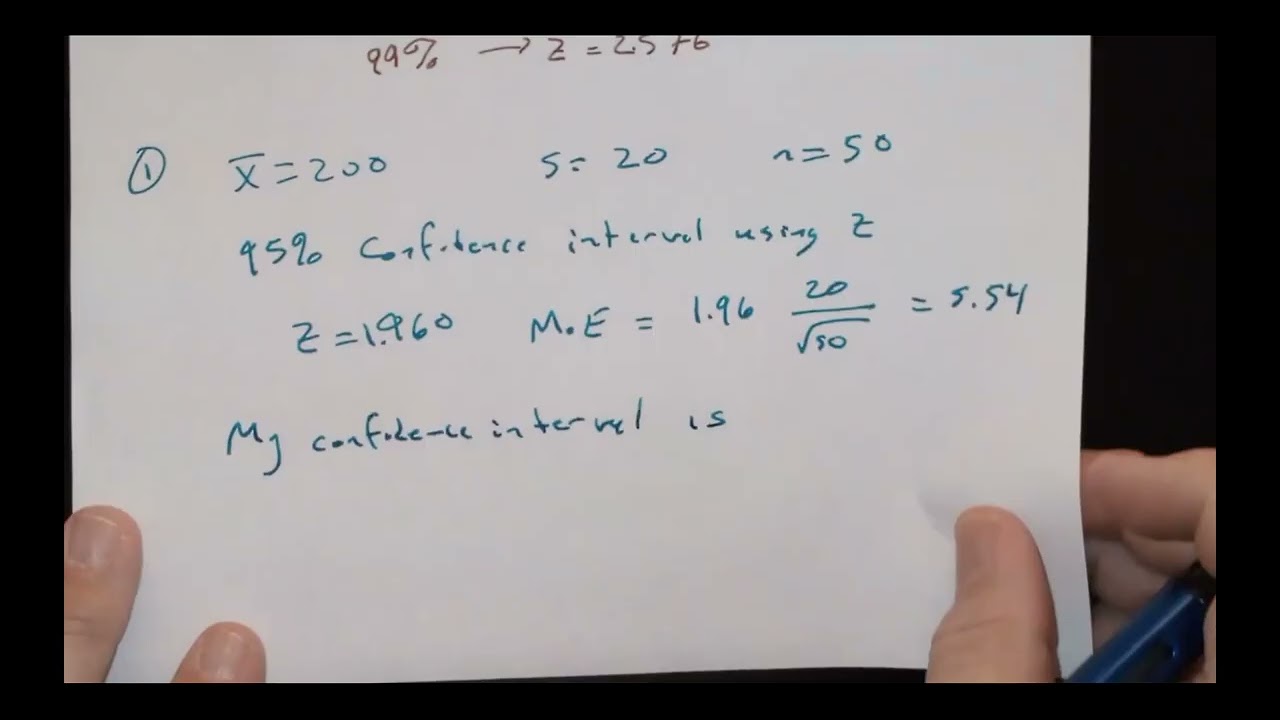 99% → z = 2.576
① x̄ = 200 s = 20 n = 50
95% Confidence interval using z
z = 1.960 M.E = 1.96 20/√50 = 5.54
My confidence interval is